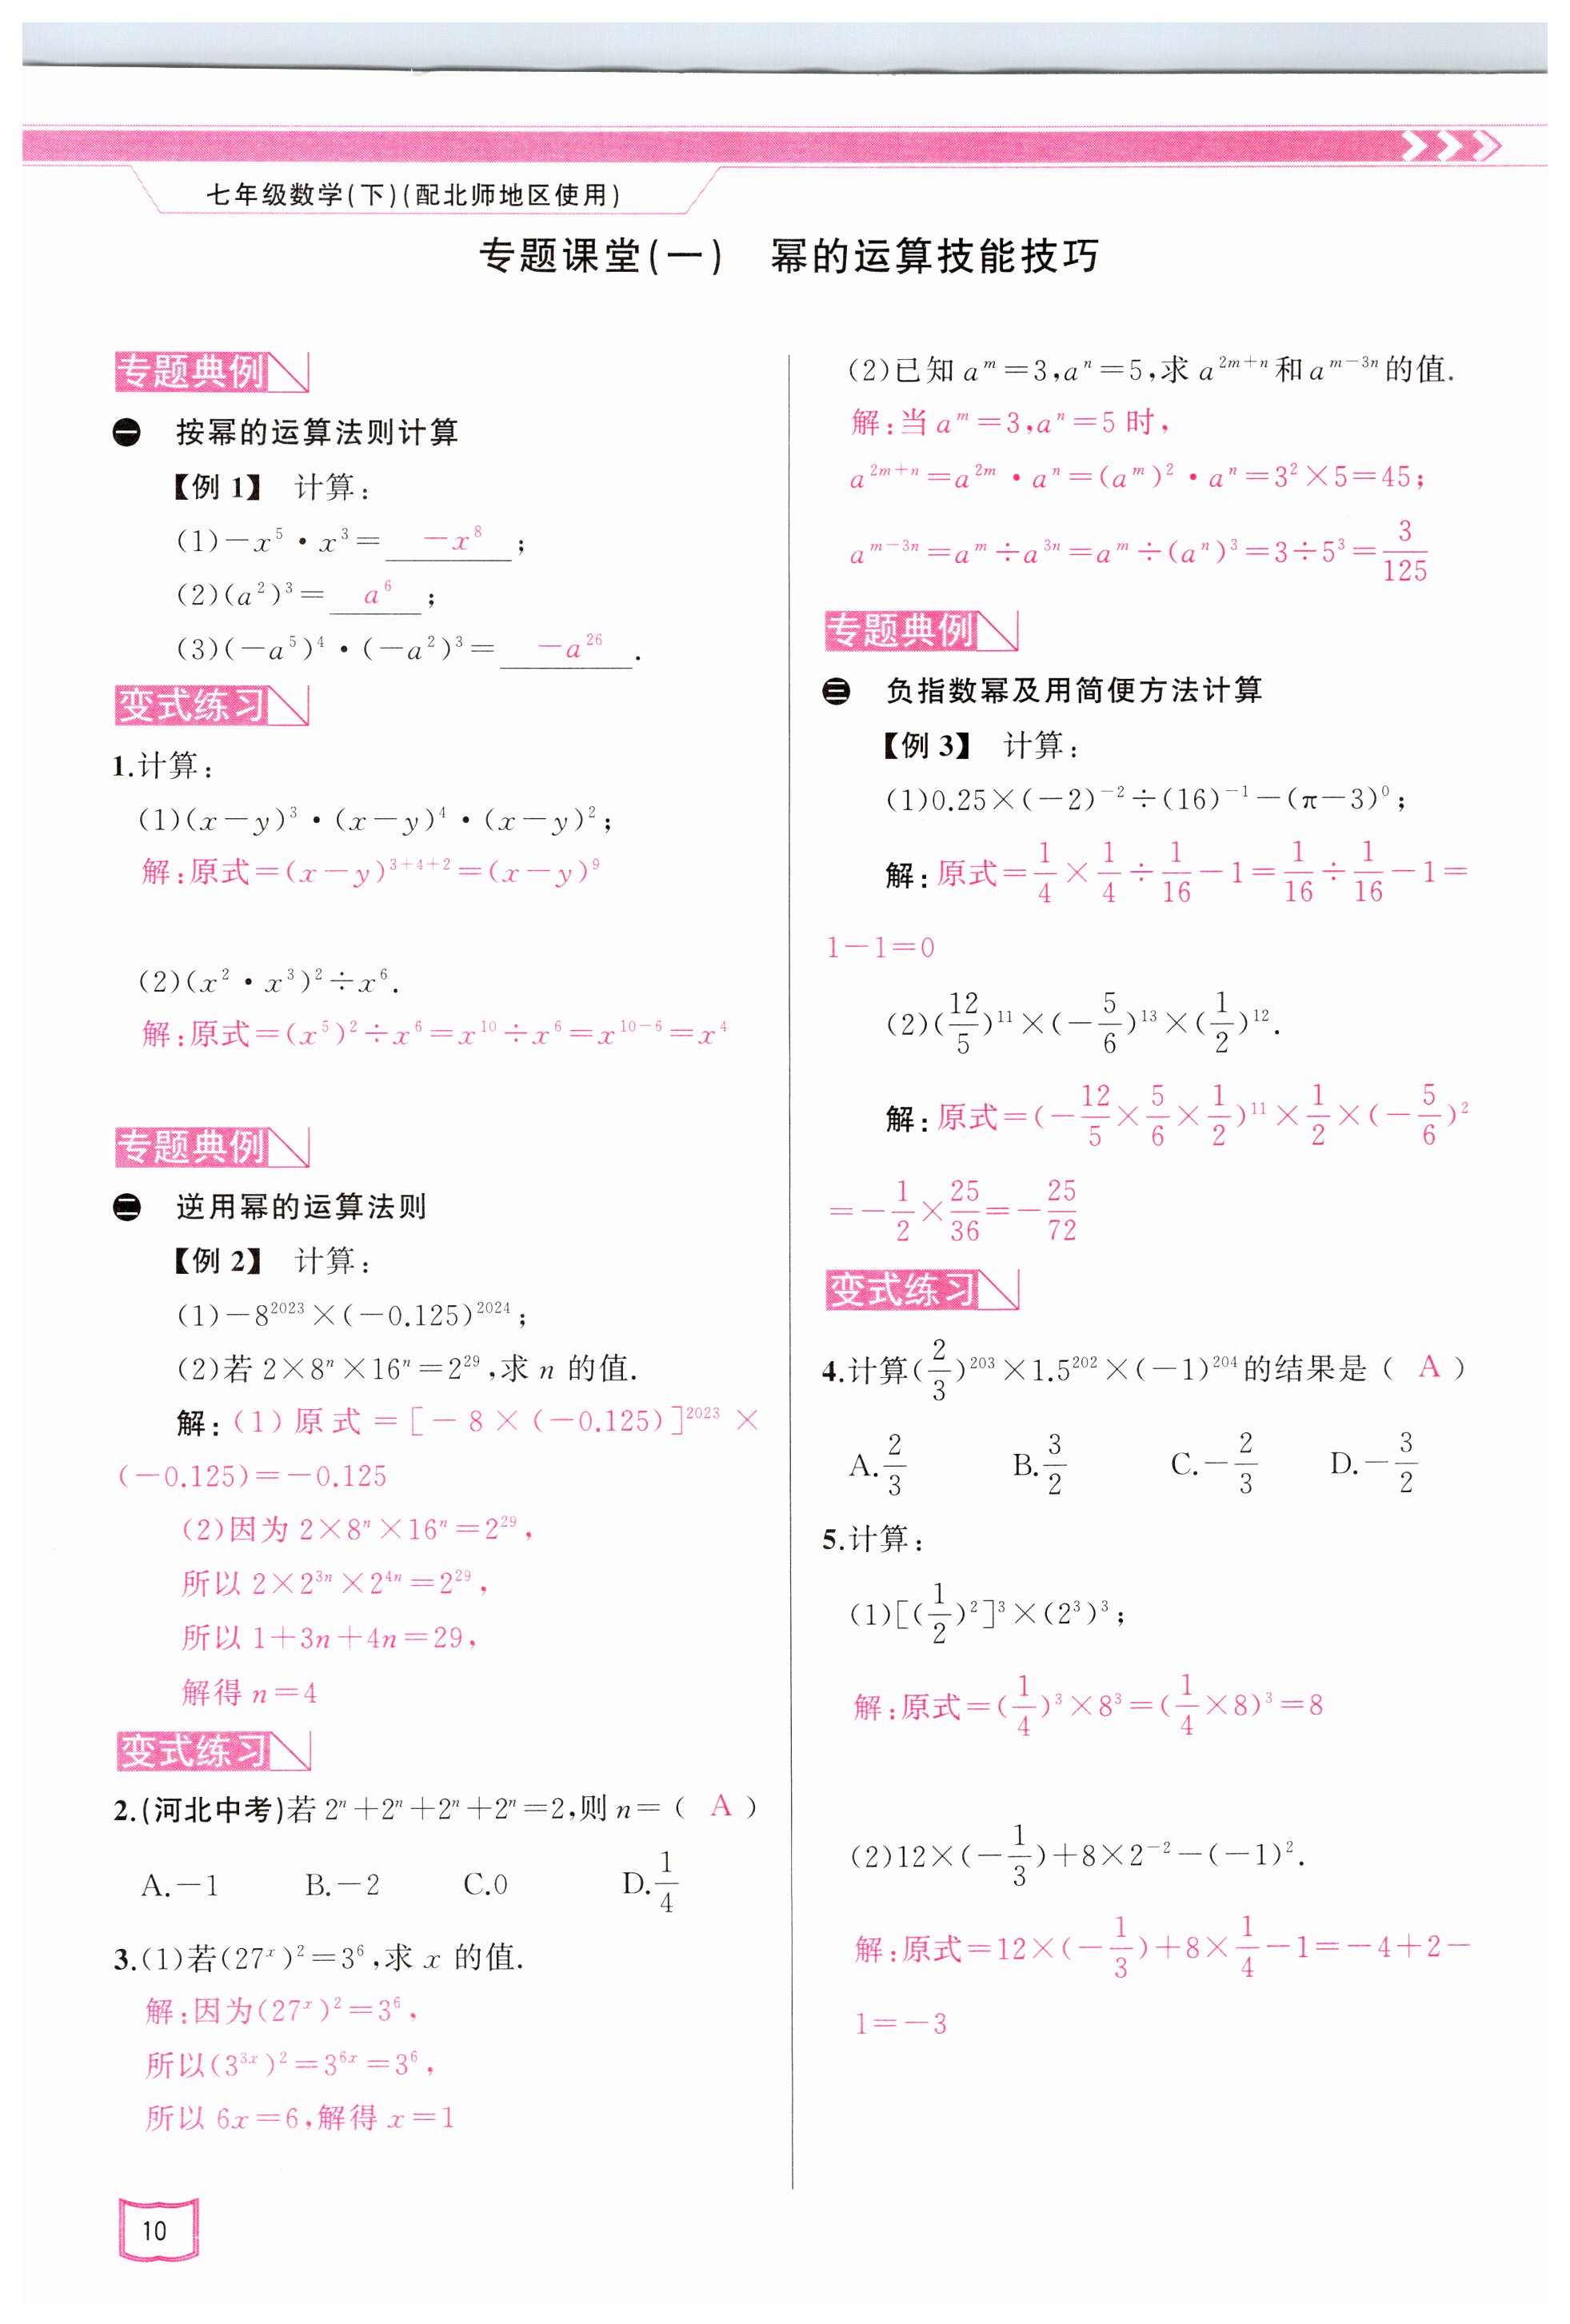 七年级数学(下)(配北师地区使用)
专题课堂(一) 幂的运算技能技巧
专题典例
一 按幂的运算法则计算
【例 1】 计算：
(1)－x⁵・x³＝ －x⁸ ；
(2)(a²)³＝ a⁶ ；
(3)(－a⁵)⁴・(－a²)³＝ －a²⁶ .
变式练习
1.计算：
(1)(x－y)³・(x－y)⁴・(x－y)²；
解：原式＝(x－y)³⁺⁴⁺²＝(x－y)⁹
(2)(x²・x³)²÷x⁶.
解：原式＝(x⁵)²÷x⁶＝x¹⁰÷x⁶＝x¹⁰⁻⁶＝x⁴
专题典例
二 逆用幂的运算法则
【例 2】 计算：
(1)－8²⁰²³×(－0.125)²⁰²⁴；
(2)若 2×8ⁿ×16ⁿ＝2²⁹，求 n 的值.
解：(1)原式＝[－8×(－0.125)]²⁰²³×
(－0.125)＝－0.125
(2)因为 2×8ⁿ×16ⁿ＝2²⁹，
所以 2×2³ⁿ×2⁴ⁿ＝2²⁹，
所以 1＋3n＋4n＝29，
解得 n＝4
变式练习
2.(河北中考)若 2ⁿ＋2ⁿ＋2ⁿ＋2ⁿ＝2，则 n＝( A )
A.－1 B.－2 C.0 D.1/4
3.(1)若(27ˣ)²＝3⁶，求 x 的值.
解：因为(27ˣ)²＝3⁶，
所以(3³ˣ)²＝3⁶ˣ＝3⁶，
所以 6x＝6，解得 x＝1
10
(2)已知 aᵐ＝3，aⁿ＝5，求 a²ᵐ⁺ⁿ和 aᵐ⁻³ⁿ的值.
解：当 aᵐ＝3，aⁿ＝5 时，
a²ᵐ⁺ⁿ＝a²ᵐ・aⁿ＝(aᵐ)²・aⁿ＝3²×5＝45；
aᵐ⁻³ⁿ＝aᵐ÷a³ⁿ＝aᵐ÷(aⁿ)³＝3÷5³＝3/125
专题典例
三 负指数幂及用简便方法计算
【例 3】 计算：
(1)0.25×(－2)⁻²÷(16)⁻¹－(π－3)⁰；
解：原式＝1/4×1/4÷1/16－1＝1/16÷1/16－1＝
1－1＝0
(2)(12/5)¹¹×(－5/6)¹³×(1/2)¹².
解：原式＝(－12/5×5/6×1/2)¹¹×1/2×(－5/6)²
＝－1/2×25/36＝－25/72
变式练习
4.计算(2/3)²⁰³×1.5²⁰²×(－1)²⁰⁴的结果是( A )
A.2/3 B.3/2 C.－2/3 D.－3/2
5.计算：
(1)[(1/2)²]³×(2³)³；
解：原式＝(1/4)³×8³＝(1/4×8)³＝8
(2)12×(－1/3)＋8×2⁻²－(－1)².
解：原式＝12×(－1/3)＋8×1/4－1＝－4＋2－
1＝－3